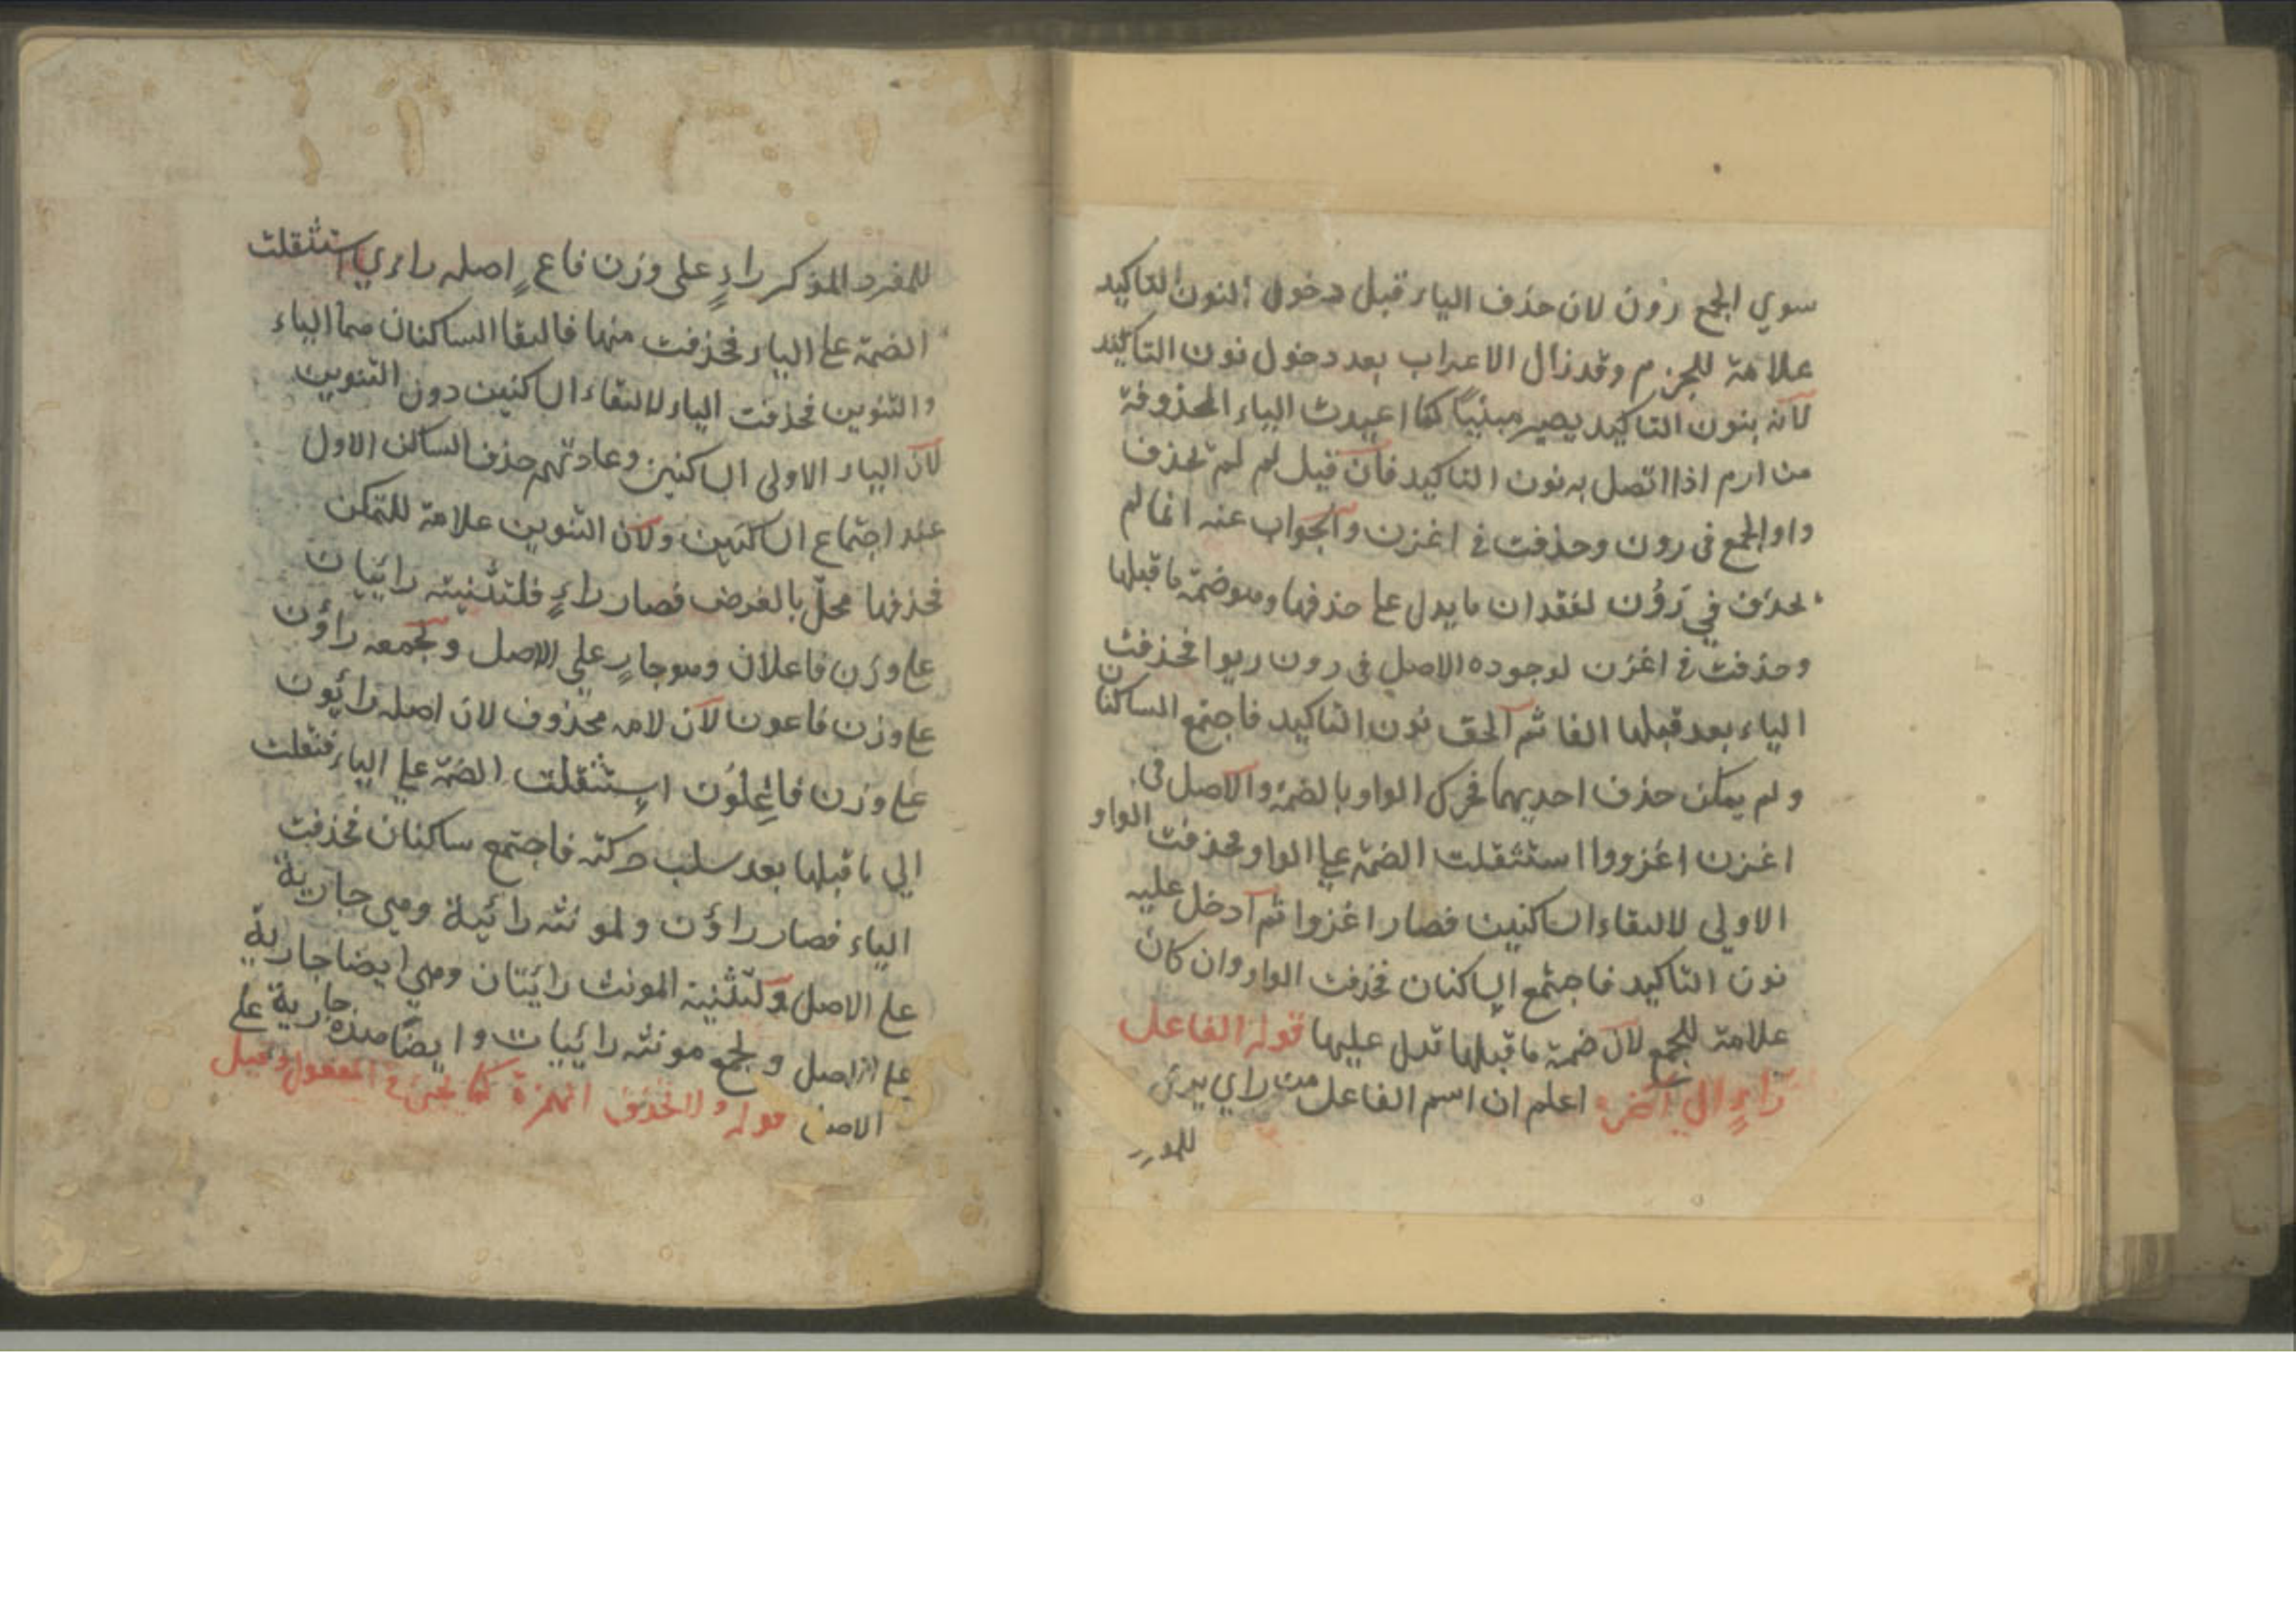 سوي الجمع رون لان حذف الياء قبل دخول النون التاكيد
علامة للجزم وقد زال الاعراب بعد دخول نون التاكيد
لانه بنون التاكيد يصير مبنيا كما اعيدت الياء المحذوفة
من ارم اذا اتصل به نون التاكيد فان قيل لم لم تحذف
واو الجمع في رون وحذفت في اغزن والجواب عنه انما لم
تحذف في رَوُن لفقدان ما يدل على حذفها وهو ضمة ما قبلها
وحذفت في اغزن لوجوده الاصل في رون ريوا فحذفت
الياء بعد قبلها الفا ثم الحق نون التاكيد فاجتمع الساكنان
ولم يمكن حذف احديهما فحرك الواو بالضمة والاصل في
اغزن اغزووا استثقلت الضمة على الواو فحذفت الواو
الاولي لالتقاء الساكنين فصار اغزوا ثم ادخل عليه
نون التاكيد فاجتمع الساكنان فحذفت الواو وان كان
علامة للجمع لان ضمة ما قبلها تدل عليها قوله الفاعل
راءٍ الى آخره اعلم ان اسم الفاعل من راي يري
للمفرد المذكر راءٍ على وزن فاعٍ اصله راءي استثقلت
الضمة على الياء فحذفت منها فالتقا الساكنان هما الياء
والتنوين فحذفت الياء لالتقاء الساكنين دون التنوين
لان الياء الاولى الساكنين وعادتهم حذف الساكن الاول
عند اجتماع الساكنين ولان التنوين علامة للتمكن
فحذفها مخل بالغرض فصار راءٍ فلتثنيته رائيان
على وزن فاعلان وهو جارٍ على الاصل ولجمعه راؤن
على وزن فاعون لان لامه محذوف لان اصله رائيون
على وزن فاعِلُون استثقلت الضمة على الياء فنقلت
الي ما قبلها بعد سلب حركته فاجتمع ساكنان فحذفت
الياء فصار راؤن ولمونثه رائية وهي جارية
على الاصل ولتثنية المونث رائيتان وهي ايضا جارية
على الاصل ولجمع مونثه رائيات وايضا هذه جارية على
الاصل قوله ولا تحذف الهمزة كما يجئ في المفعول وقيل